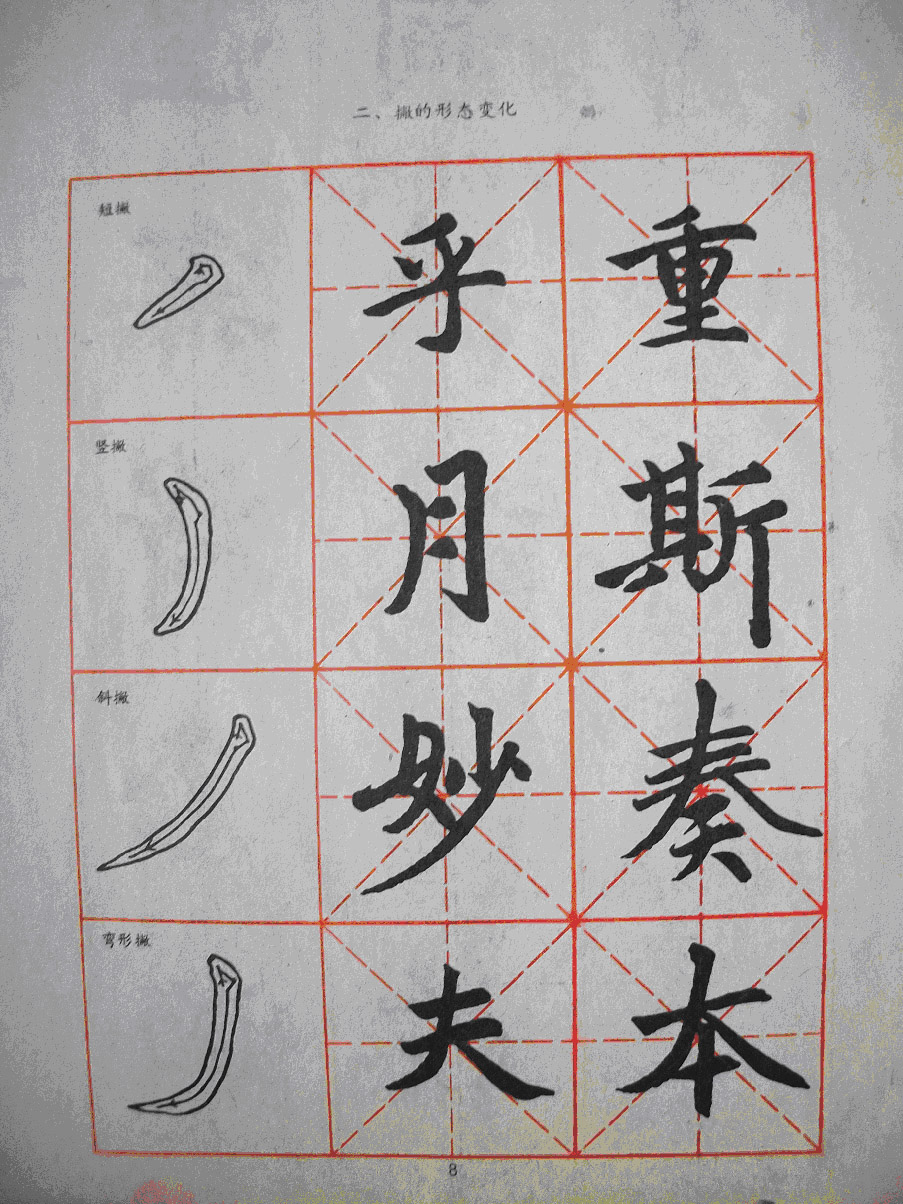 二、撇的形态变化
短撇
乎 重
竖撇
月 斯
斜撇
妙 奏
弯形撇
夫 本
8